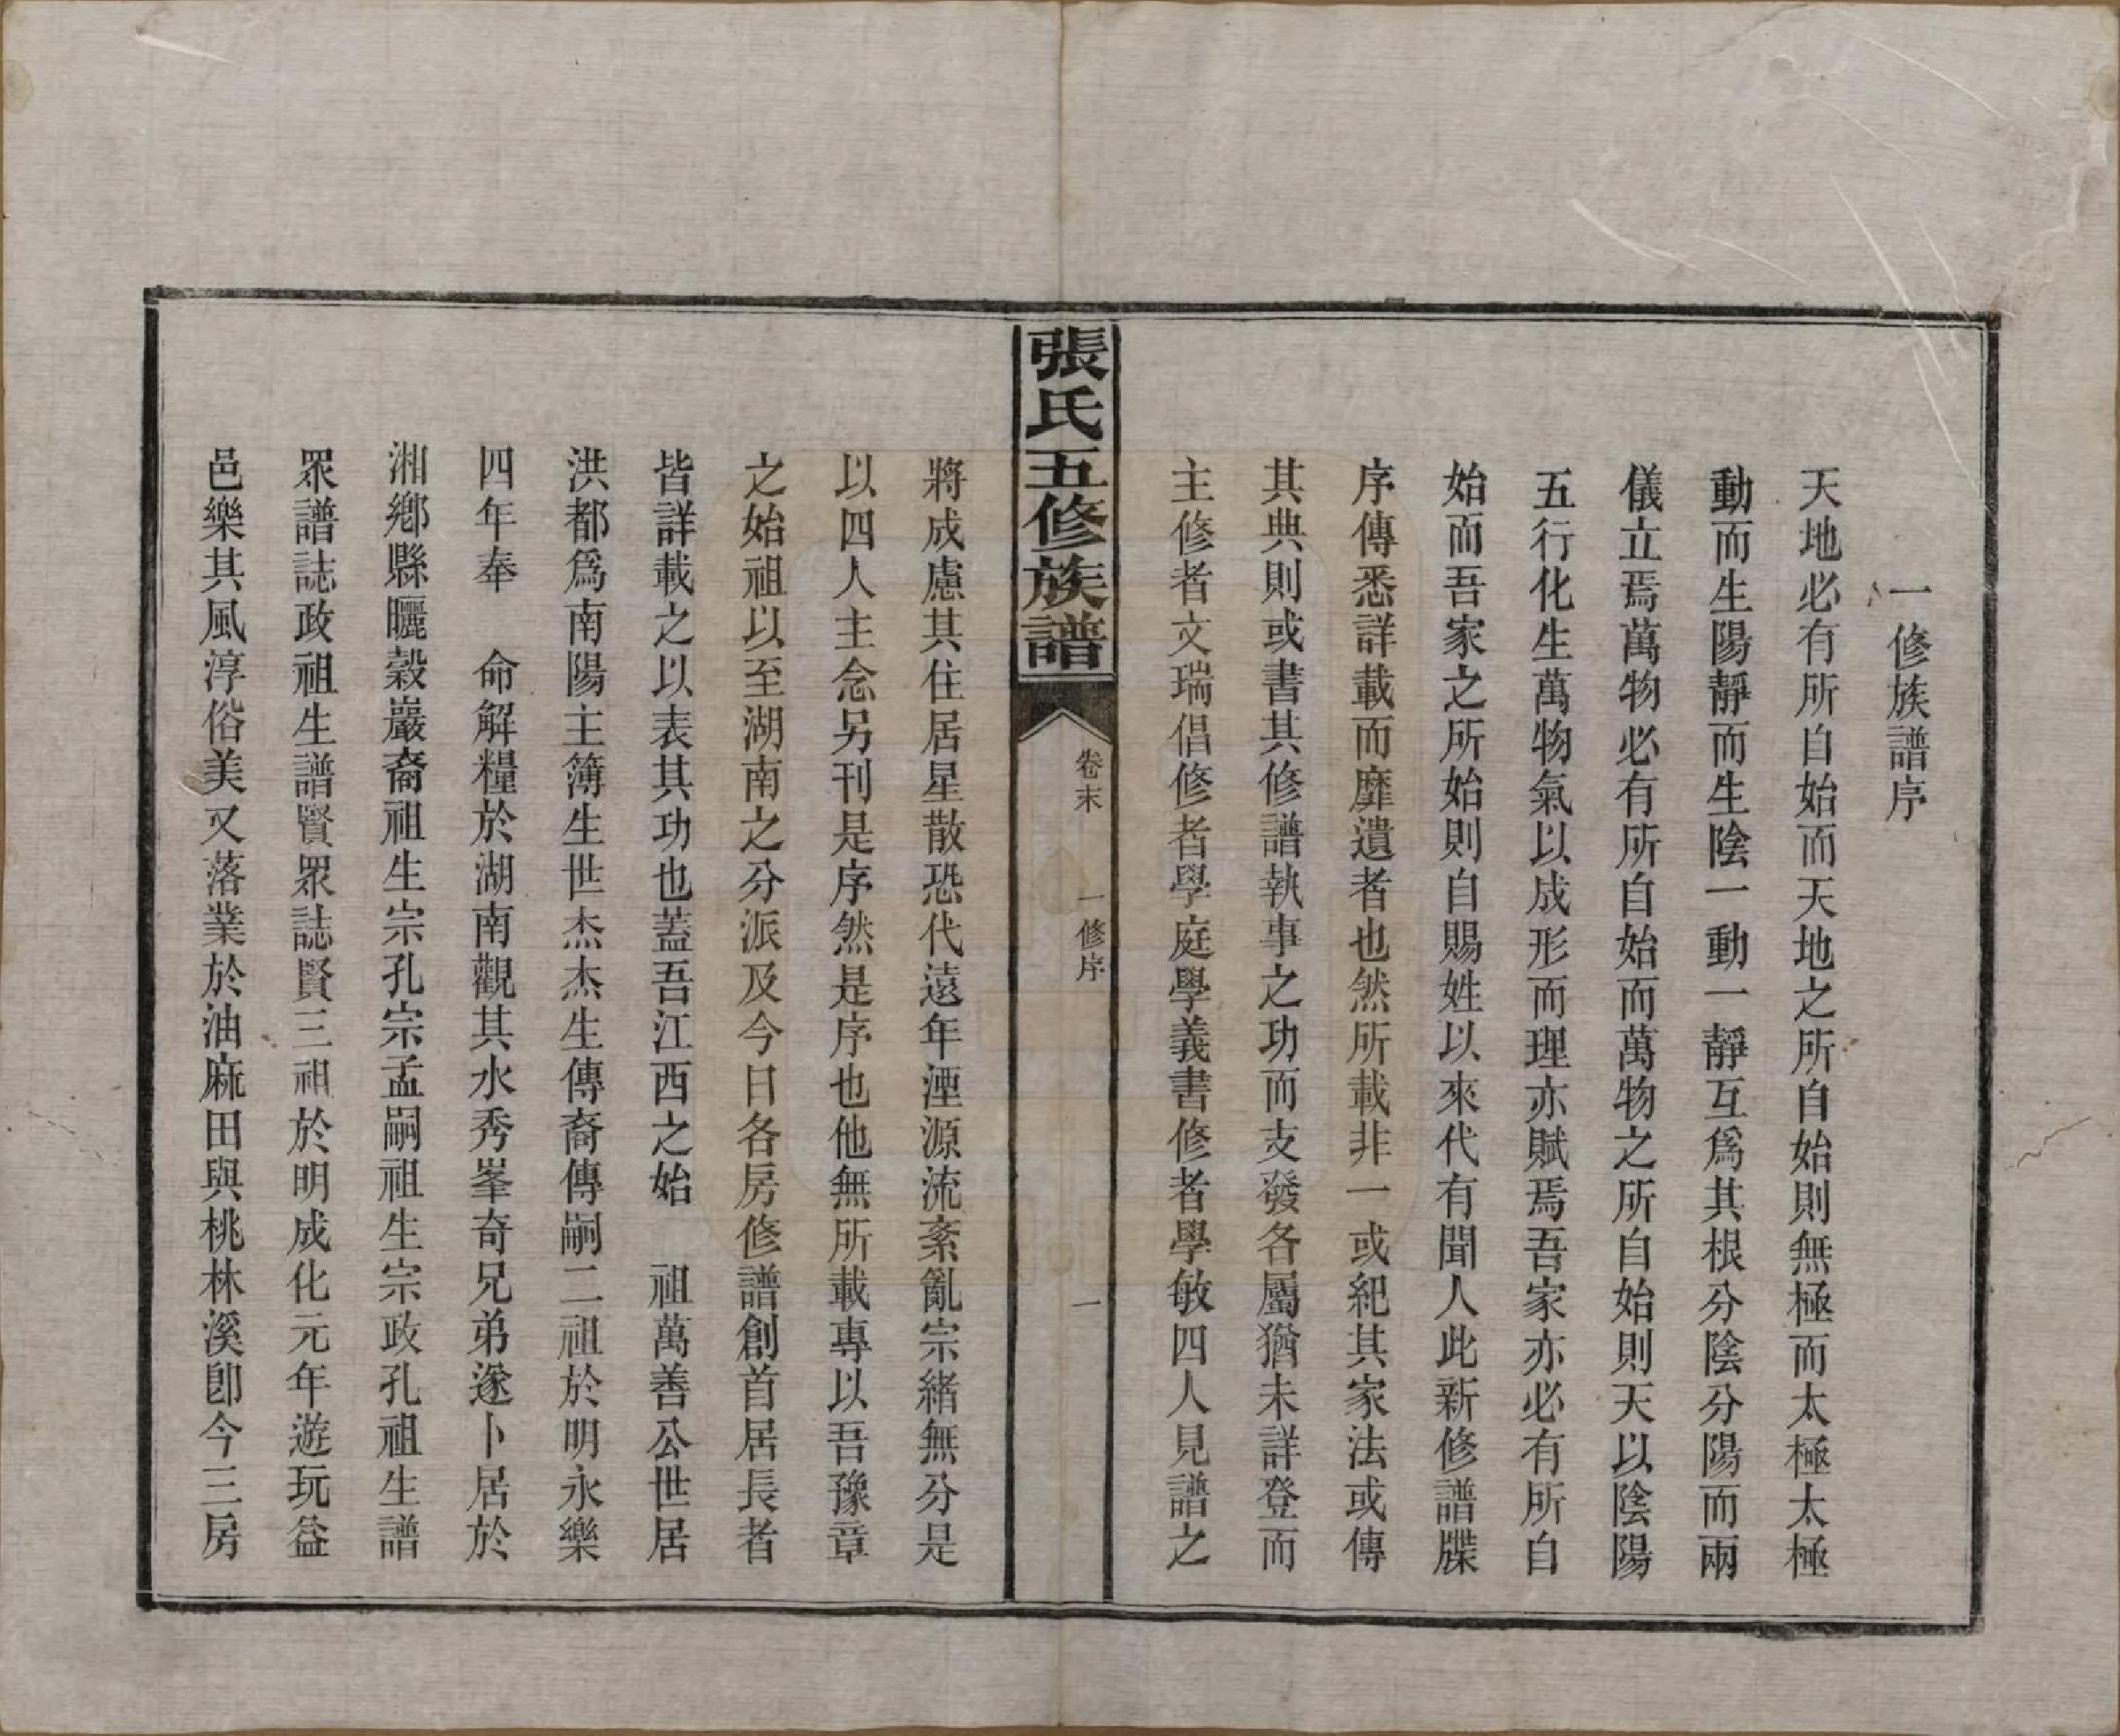 一修族譜序
天地必有所自始而天地之所自始則無極而太極太極
動而生陽靜而生陰一動一靜互爲其根分陰分陽而兩
儀立焉萬物必有所自始而萬物之所自始則天以陰陽
五行化生萬物氣以成形而理亦賦焉吾家亦必有所自
始而吾家之所始則自賜姓以來代有聞人此新修譜牒
序傳悉詳載而靡遺者也然所載非一或紀其家法或傳
其典則或書其修譜執事之功而支發各屬猶未詳登而
主修者文瑞倡修者學庭學義書修者學敏四人見譜之
張氏五修族譜
卷末
一修序
一
將成慮其住居星散恐代遠年湮源流紊亂宗緒無分是
以四人主念另刊是序然是序也他無所載專以吾豫章
之始祖以至湖南之分派及今日各房修譜創首居長者
皆詳載之以表其功也蓋吾江西之始　祖萬善公世居
洪都爲南陽主簿生世杰杰生傳裔傳嗣二祖於明永樂
四年奉　命解糧於湖南觀其水秀峯奇兄弟遂卜居於
湘鄉縣曬穀巖裔祖生宗孔宗孟嗣祖生宗政孔祖生譜
眾譜誌政祖生譜賢眾誌賢三祖於明成化元年遊玩益
邑樂其風淳俗美又落業於油麻田與桃林溪卽今三房